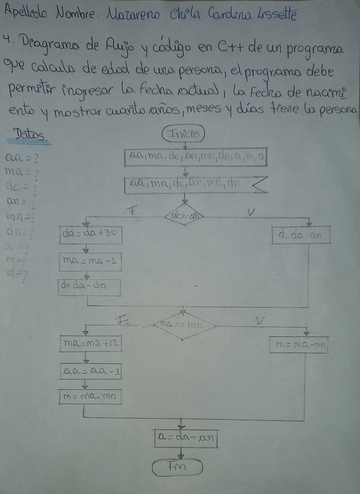 Apellido Nombre: Nazareno Chila Carolina Lissette
4. Diagrama de flujo y código en C++ de un programa
que calcula de edad de una persona, el programa debe
permitir ingresar la fecha actual, la fecha de nacimi
ento y mostrar cuanto años, meses y días tiene la persona
Datos
Inicio
aa = ?
aa, ma, dc, an, mn, dn, a,
ma = ?
aa, ma, dc, an, mn, dn
dc = ?
an = ?
F. V
mn = ?
da = da+30
d = da-dn
dn = ?
a = ?
ma = ma-1
m = ?
d = ?
d = da-dn
F. V
ma = ma+12
m = ma-mn
aa = aa-1
m = ma-mn
a = da-an
Fin